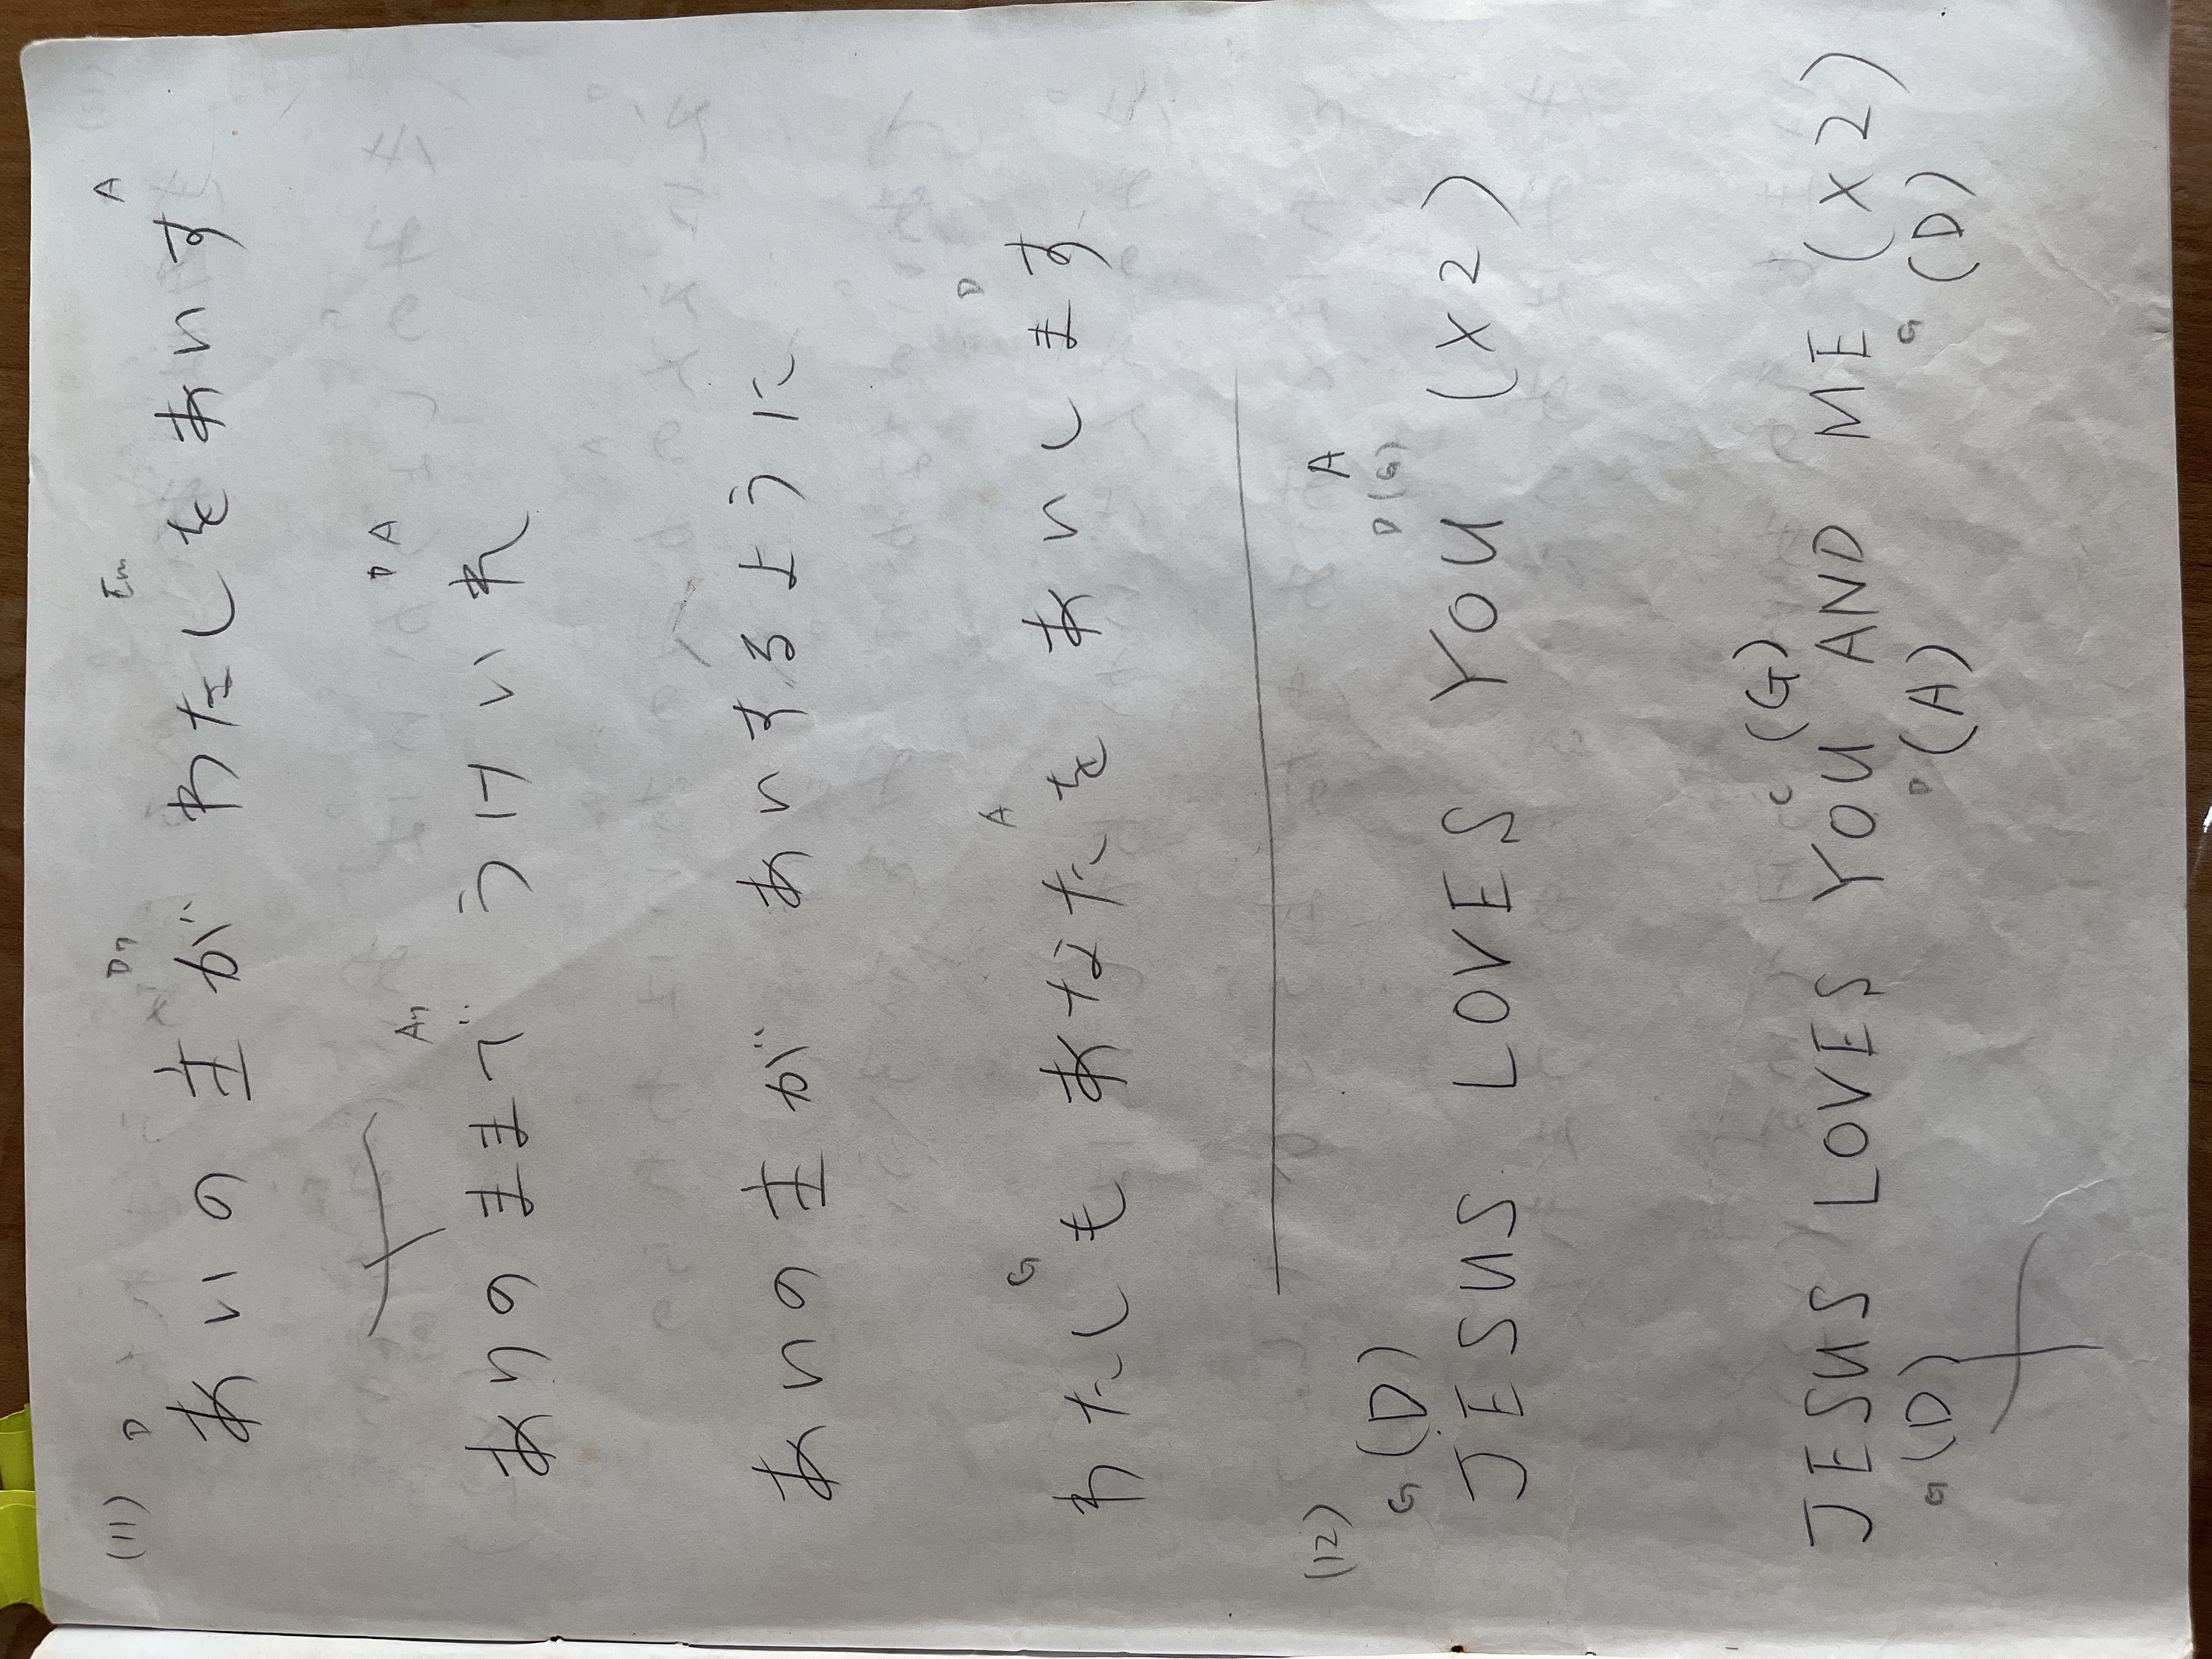 (11) D D7 Em A
あいの 主が わたしをあいす
A7 D A
ありのままで うけいれ
あいの 主が あいするように
G A D
わたしも あなたを あいします
(12)
G (D) D(G) A
JESUS LOVES YOU (X2)
C (G)
JESUS LOVES YOU AND ME (X2)
G (D) D (A) G (D)